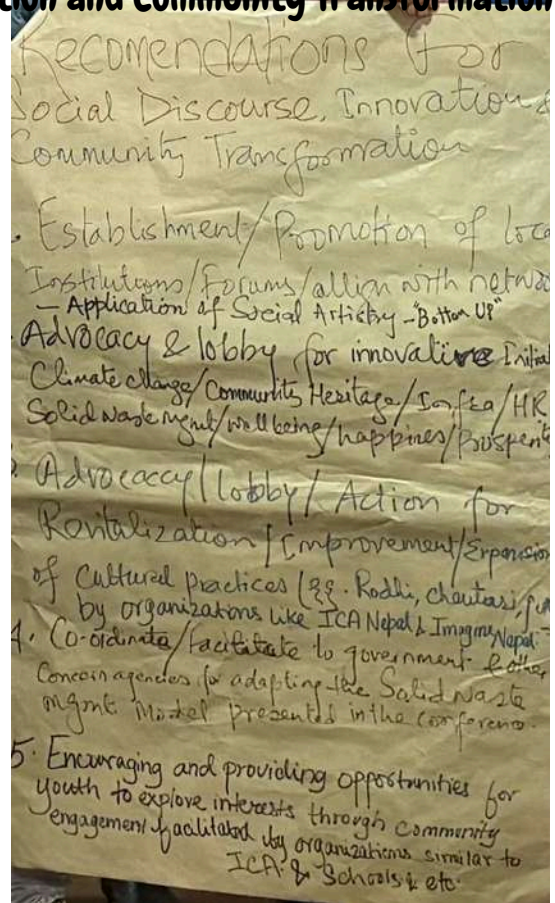 and Community Transformation
Recomendations For
Social Discourse, Innovation &
Community Transformation
. Establishment/Promotion of loca
Institutions/Forums/allign with netwo
- Application of Social Artistry - "Bottom Up"
Advocacy & lobby for innovative Initia
Climate change/Community Heritage/Infra/HR
Solid waste Mgmt/wellbeing/happines/Prosperit
Advocaccy/lobby/Action for
Revitalization/Improvement/Expansion
of Cultural practices (eg. Rodhi, chautari,
by organizations like ICA Nepal & Imagine Nepal
4. Co-ordinate/facilitate to government & other
Concern agencies for adapting the Solid Waste
mgmt Model presented in the conference.
5. Encouraging and providing opportunities for
youth to explore interests through community
engagement facilitated by organizations similar to
ICA & Schools & etc.